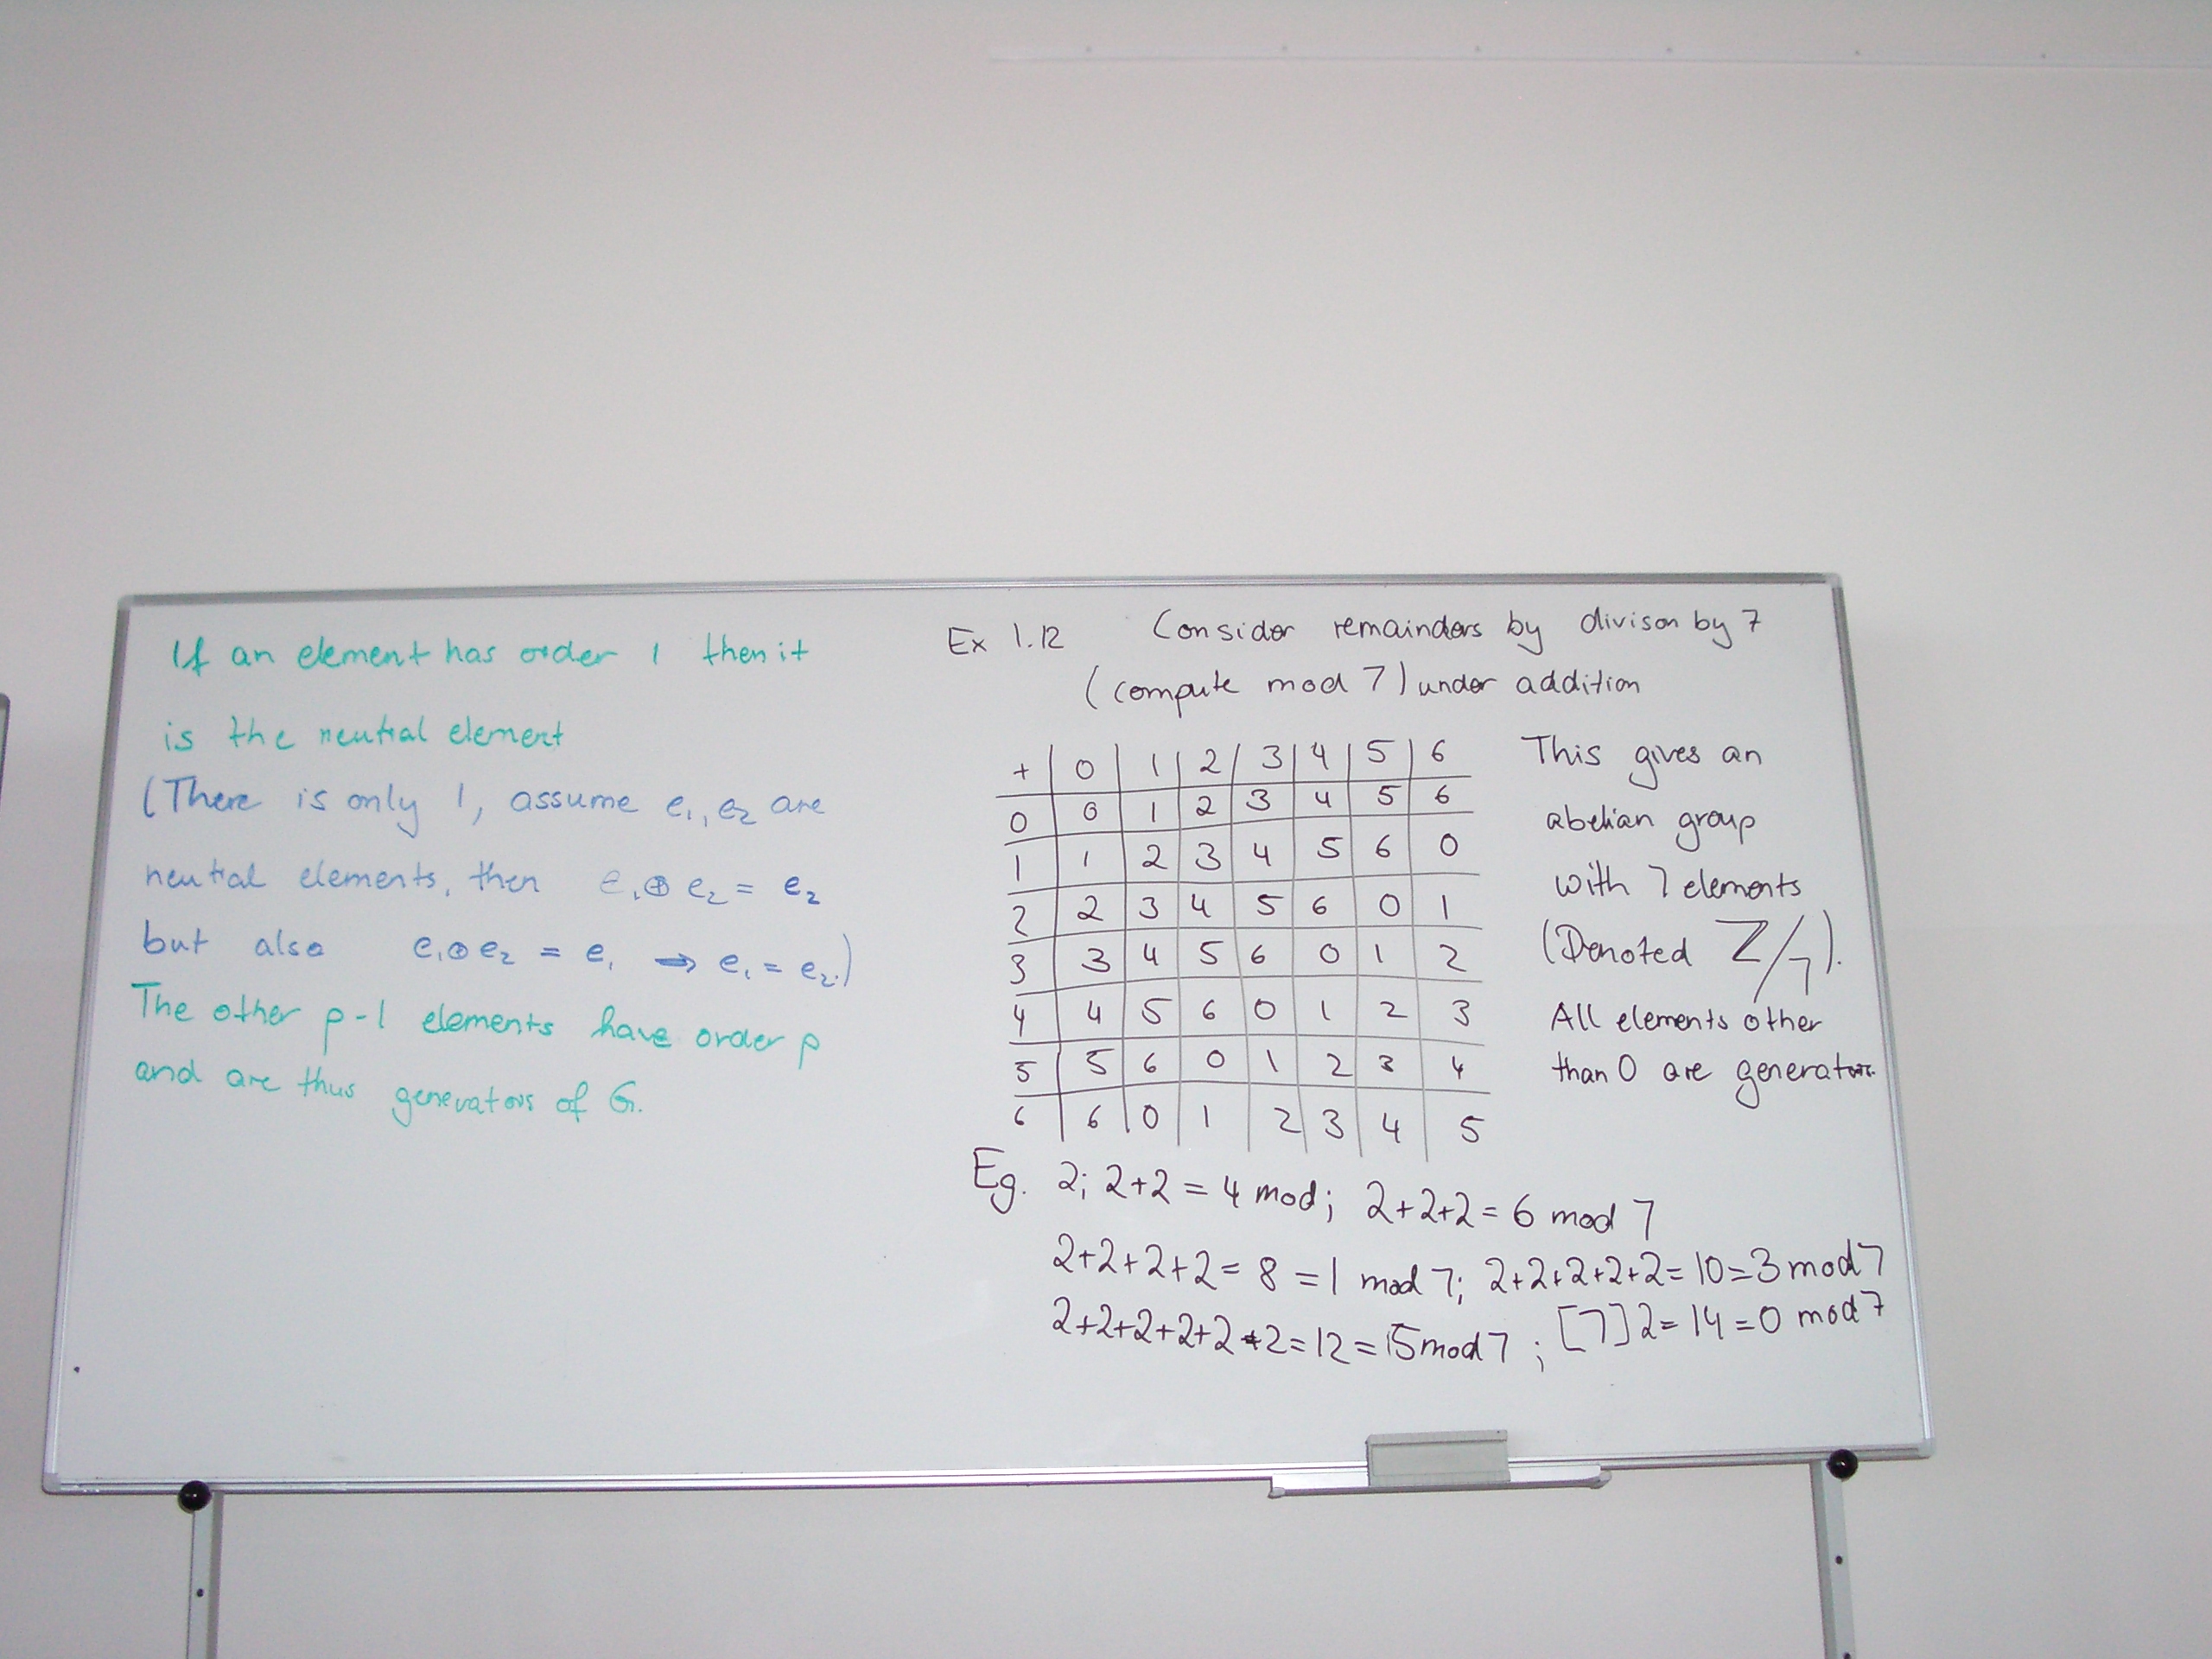 If an element has order 1 then it
is the neutral element
(There is only 1, assume e₁, e₂ are
neutral elements, then e₁⊕e₂ = e₂
but also e₁⊕e₂ = e₁ ⇒ e₁ = e₂.)
The other p-1 elements have order p
and are thus generators of G.
Ex 1.12 Consider remainders by divison by 7
(compute mod 7) under addition
+ | 0 | 1 | 2 | 3 | 4 | 5 | 6
0 | 0 | 1 | 2 | 3 | 4 | 5 | 6
1 | 1 | 2 | 3 | 4 | 5 | 6 | 0
2 | 2 | 3 | 4 | 5 | 6 | 0 | 1
3 | 3 | 4 | 5 | 6 | 0 | 1 | 2
4 | 4 | 5 | 6 | 0 | 1 | 2 | 3
5 | 5 | 6 | 0 | 1 | 2 | 3 | 4
6 | 6 | 0 | 1 | 2 | 3 | 4 | 5
This gives an
abelian group
with 7 elements
(Denoted Z/7).
All elements other
than 0 are generators.
Eg. 2; 2+2 = 4 mod; 2+2+2 = 6 mod 7
2+2+2+2 = 8 = 1 mod 7; 2+2+2+2+2 = 10 = 3 mod 7
2+2+2+2+2+2 = 12 = 5 mod 7; [7]2 = 14 = 0 mod 7